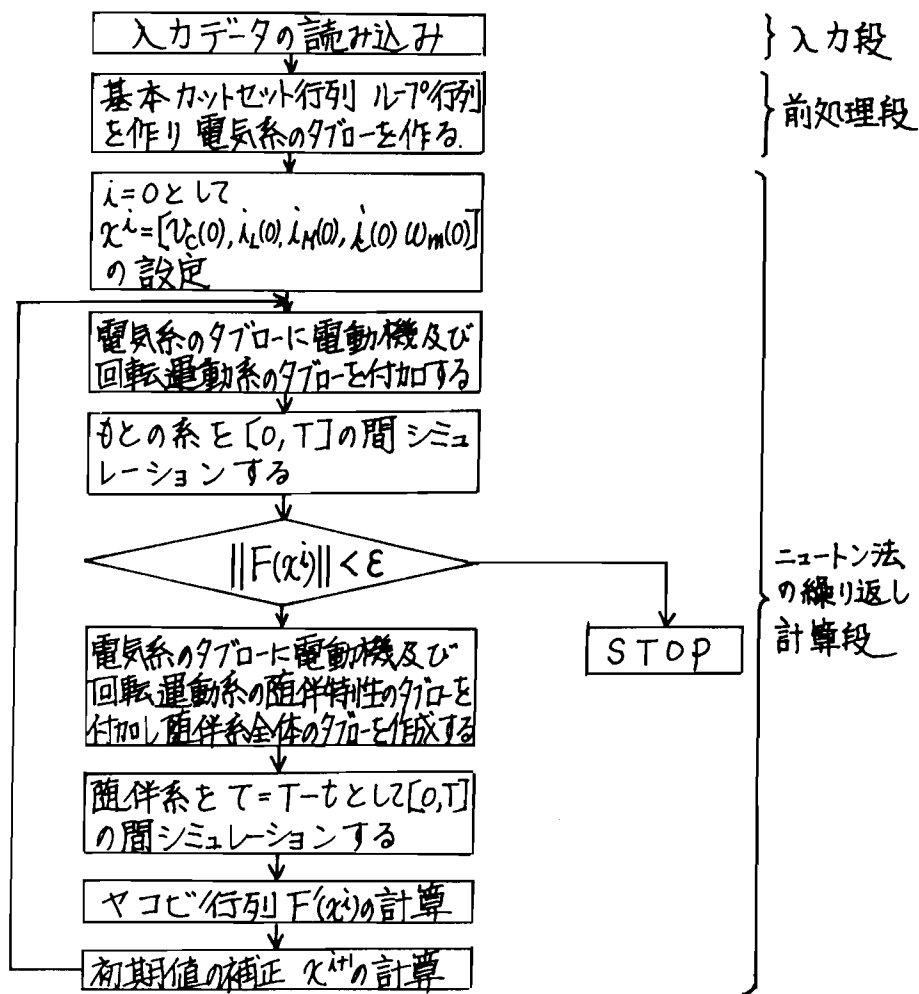 入力データの読み込み
入力段
基本カットセット行列 ループ行列
を作り 電気系のタブローを作る.
前処理段
i=0として
x^i=[v_C(0), i_L(0), i_M(0), i_c(0) ω_m(0)]
の設定
電気系のタブローに電動機及び
回転運動系のタブローを付加する
もとの系を[0,T]の間シミュ
レーションする
||F(x^i)||<ε
ニュートン法
の繰り返し
計算段
STOP
電気系のタブローに電動機及び
回転運動系の随伴特性のタブローを
付加し随伴系全体のタブローを作成する
随伴系をτ=T-tとして[0,T]
の間シミュレーションする
ヤコビ行列F'(x^i)の計算
初期値の補正 x^{i+1}の計算